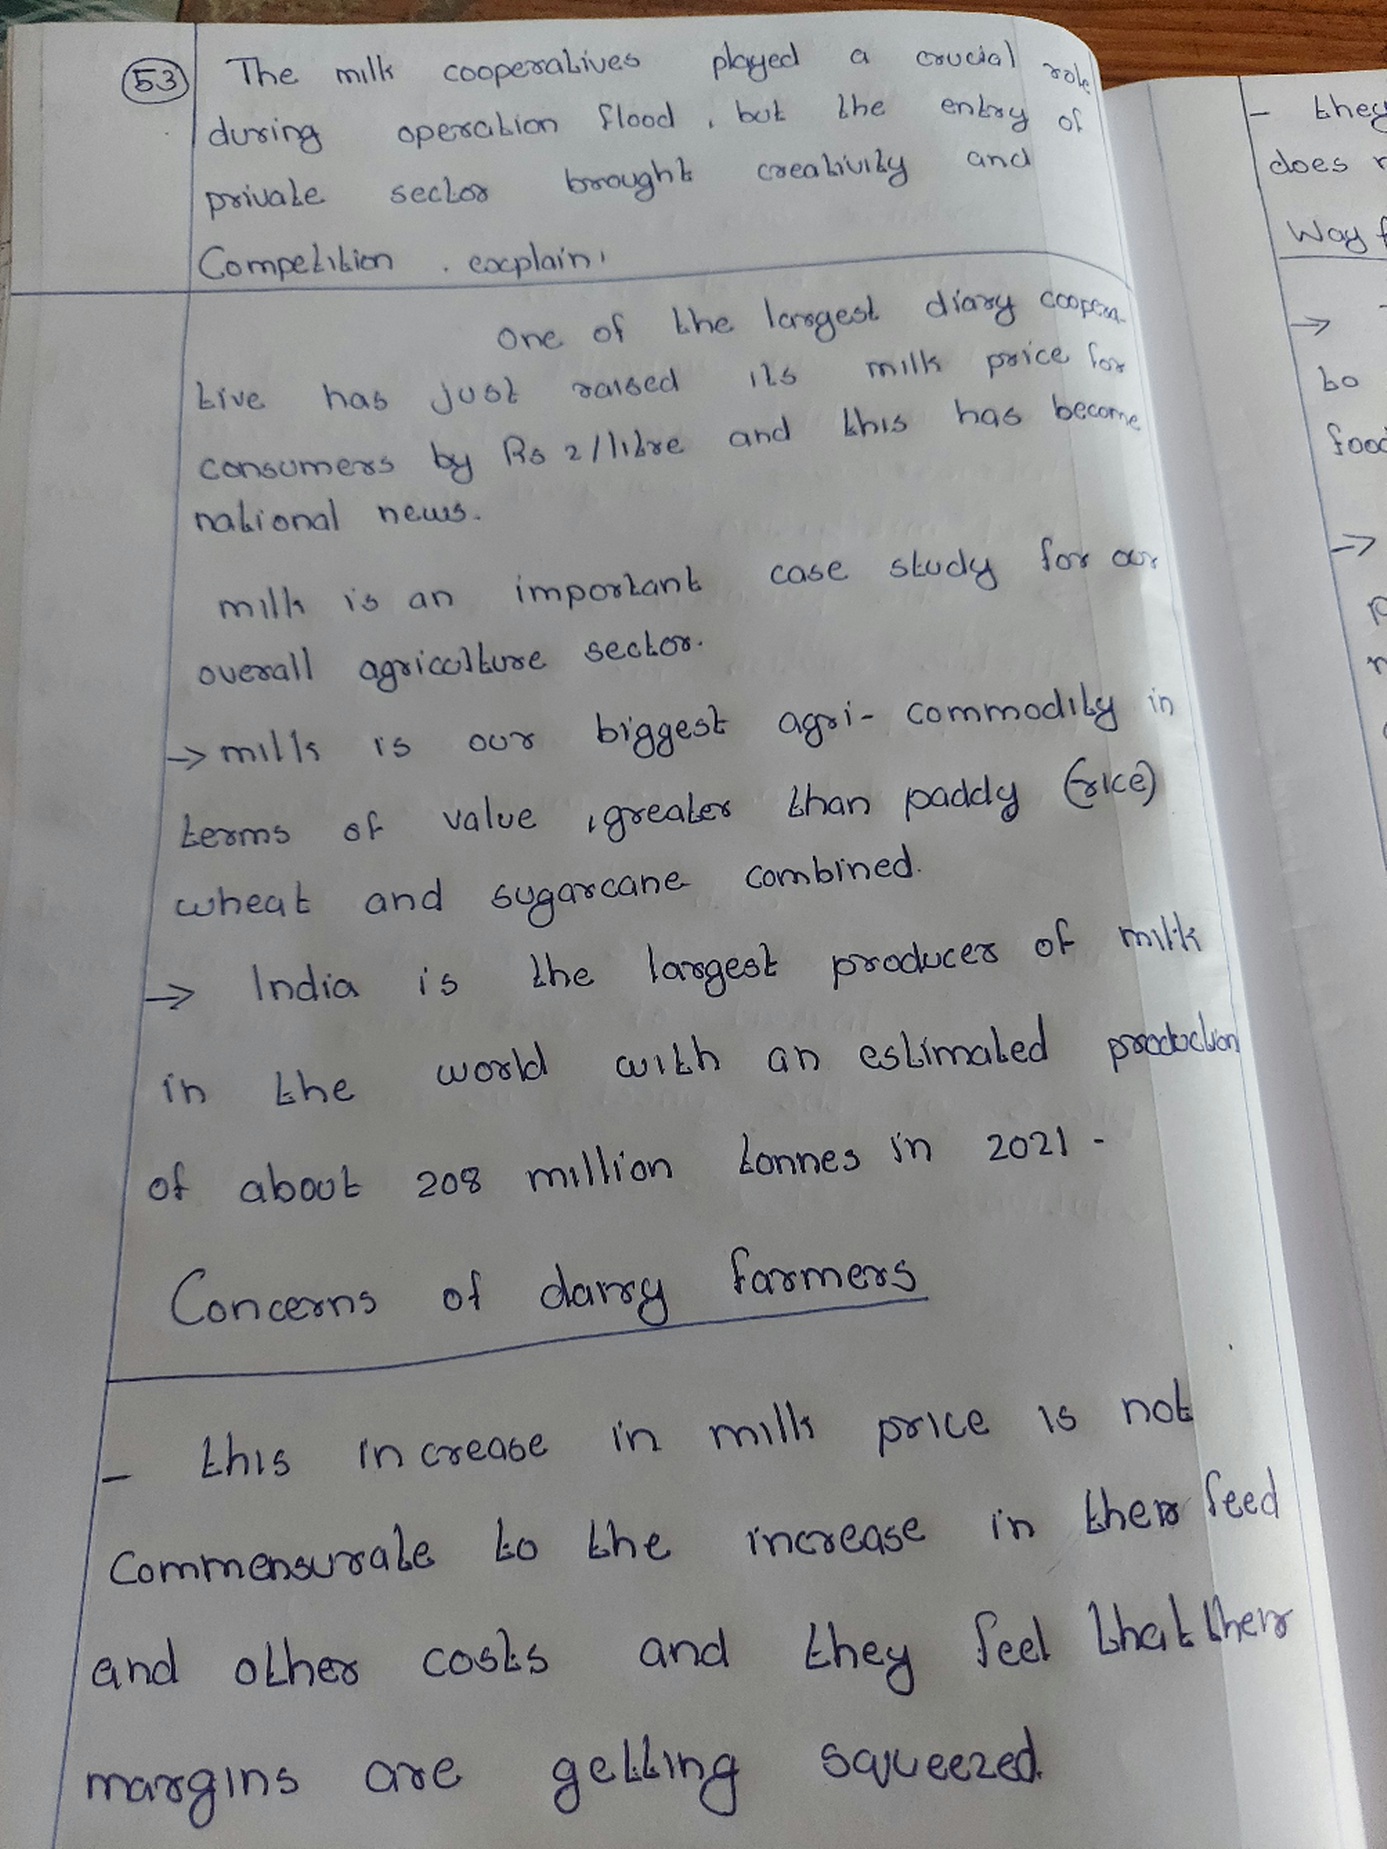 53 The milk cooperatives played a crucial role
during operation flood, but the entry of
private sector brought creativity and
Competition. explain.
one of the largest diary coopera-
tive has just raised its milk price for
consumers by Rs 2/litre and this has become
national news.
milk is an important case study for our
overall agriculture sector.
→ milk is our biggest agri- commodity in
terms of value, greater than paddy (rice)
wheat and sugarcane combined.
→ India is the largest producer of milk
in the world with an estimated production
of about 208 million tonnes in 2021 -
Concerns of dairy farmers
- this increase in milk price is not
Commensurate to the increase in their feed
and other costs and they feel that their
margins are getting squeezed.
- they
does
Way
→
to
food
→